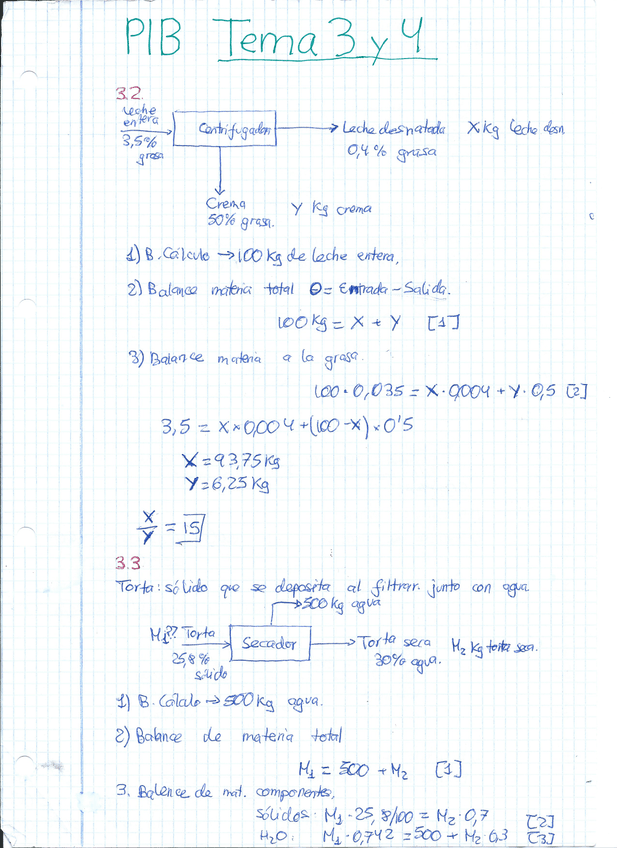 PIB Tema 3 y 4
3.2.
Leche
entera
3,5%
grasa
Centrifugador
Leche desnatada X Kg leche desn
0,4% grasa
Crema
50% grasa.
Y Kg crema
1) B. Cálculo → 100 Kg de leche entera,
2) Balance materia total 0 = Entrada - Salida.
100 Kg = X + Y [1]
3) Balance materia a la grasa.
100 · 0,035 = X · 0,004 + Y · 0,5 [2]
3,5 = X × 0,004 + (100 - X) × 0'5
X = 93,75 Kg
Y = 6,25 Kg
X/Y = 15
3.3
Torta: sólido que se deposita al filtrar. junto con agua
→ 500 kg agua
M1?? Torta
25,8%
sólido
Secador
Torta seca M2 Kg torta seca.
30% agua.
1) B. Cálculo → 500 kg agua.
2) Balance de materia total
M1 = 500 + M2 [1]
3. Balance de mat. componentes,
sólidos: M1 · 25,8/100 = M2 · 0,7 [2]
H2O: M1 · 0,742 = 500 + M2 · 0,3 [3]